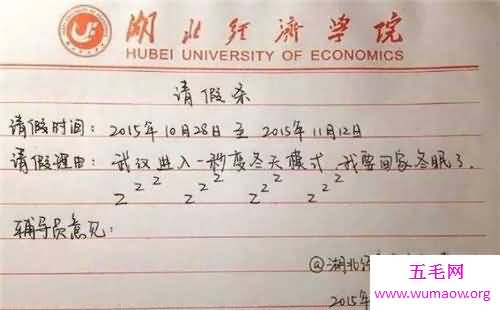 湖北经济学院
HUBEI UNIVERSITY OF ECONOMICS
请假条
请假时间：2015年10月28日 至 2015年11月12日
请假理由：武汉进入一秒度冬天模式，我要回家冬眠了.
z z z z z z z z z z z z
辅导员意见：
@湖北经
2015年
五毛网
www.wumaow.org